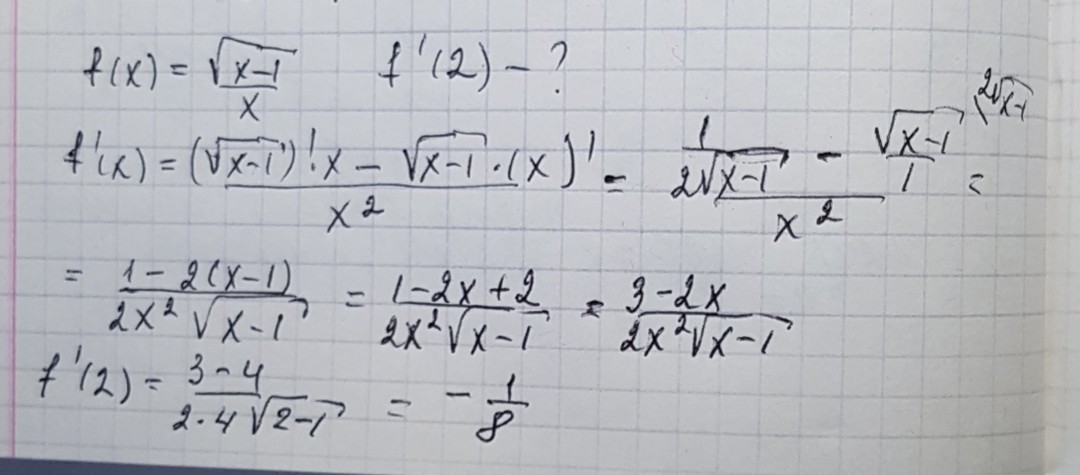 f(x) = √(x-1)/x   f'(2) - ?
f'(x) = ((√(x-1))'·x - √(x-1)·(x)')/x² = (1/(2√(x-1)) - √(x-1)/1 \2√(x-1))/x² =
= (1-2(x-1))/(2x²√(x-1)) = (1-2x+2)/(2x²√(x-1)) = (3-2x)/(2x²√(x-1))
f'(2) = (3-4)/(2·4√(2-1)) = -1/8